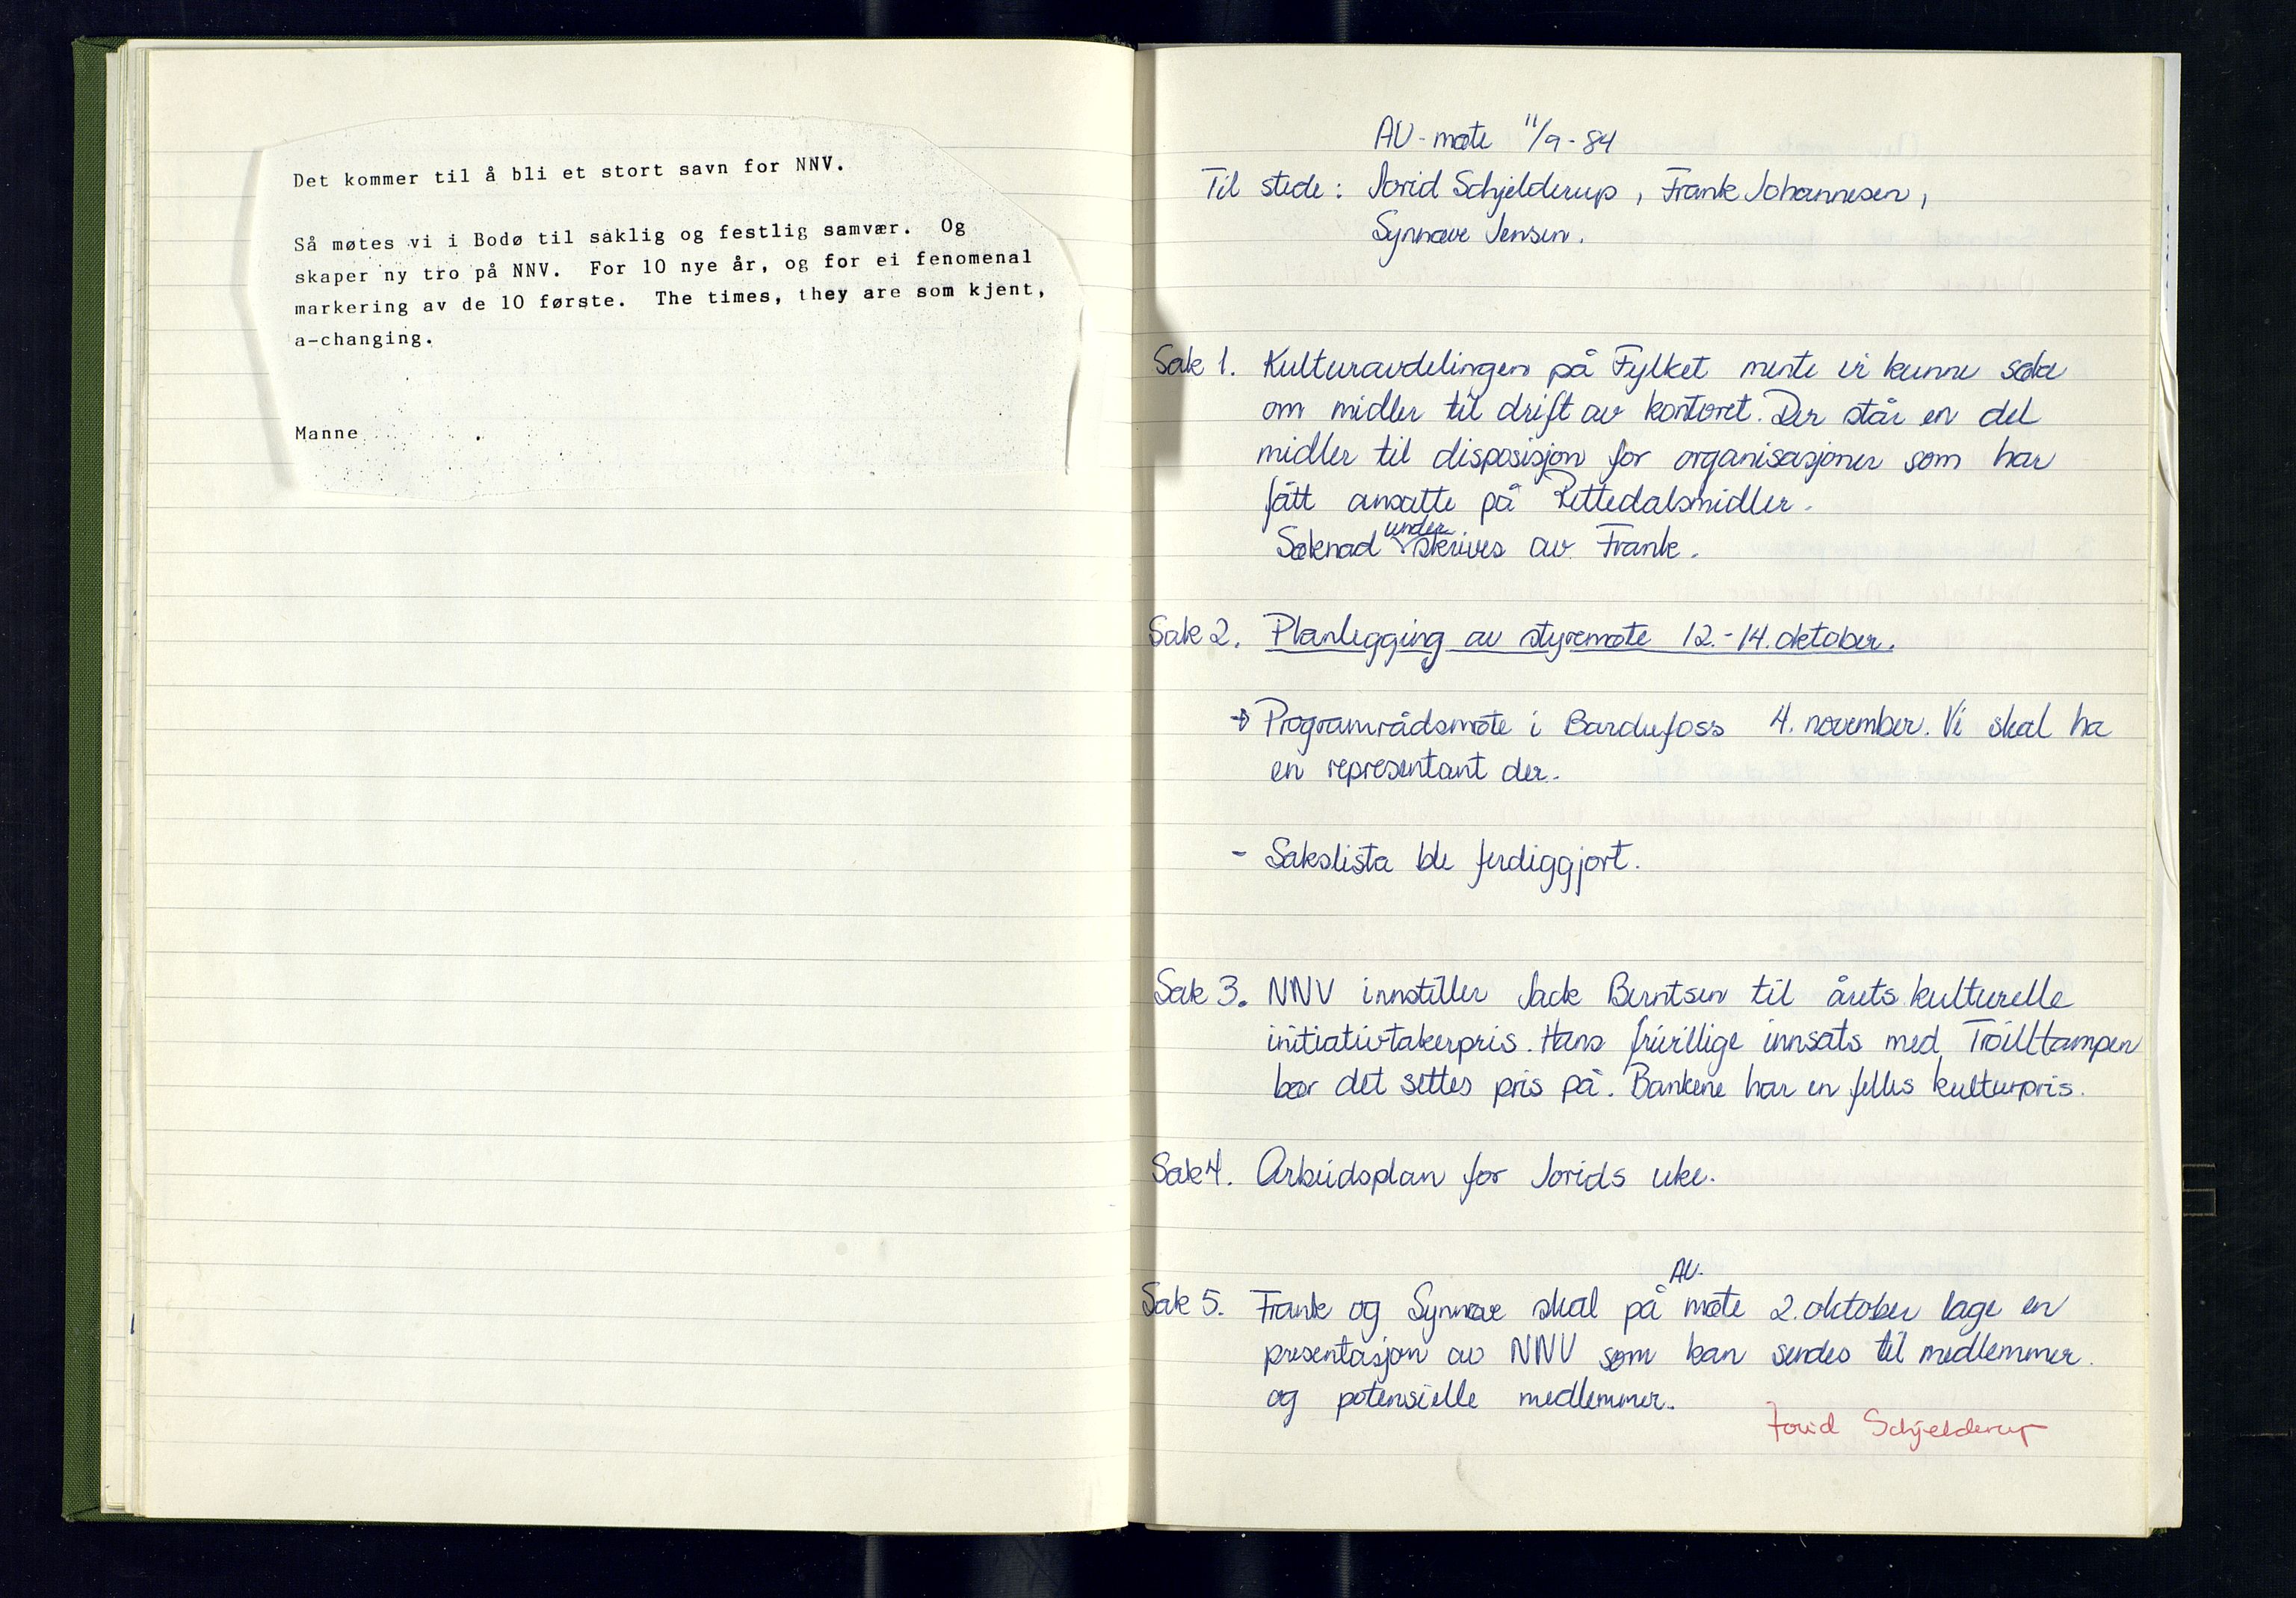 Det kommer til å bli et stort savn for NNV.
Så møtes vi i Bodø til saklig og festlig samvær. Og
skaper ny tro på NNV. For 10 nye år, og for ei fenomenal
markering av de 10 første. The times, they are som kjent,
a-changing.
Manne
AU-møte 11/9-84
Til stede: Jorid Schjelderup, Frank Johannesen,
Synnøve Jensen.
Sak 1. Kulturavdelingen på Fylket mente vi kunne søke
om midler til drift av kontoret. Der står en del
midler til disposisjon for organisasjoner som har
fått ansatte på Rettedalsmidler.
under
Søknad skrives av Frank.
Sak 2. Planlegging av styremøte 12.-14. oktober.
→ Programrådsmøte i Bardufoss 4. november. Vi skal ha
en representant der.
- Sakslista ble ferdiggjort.
Sak 3. NNV innstiller Jack Berntsen til årets kulturelle
initiativtakerpris. Hans frivillige innsats med Trolltampen
bør det settes pris på. Bankene har en felles kulturpris.
Sak 4. Arbeidsplan for Jorids uke.
AU-
Sak 5. Frank og Synnøve skal på møte 2. oktober lage en
presentasjon av NNV som kan sendes til medlemmer
og potensielle medlemmer.
Jorid Schjelderup